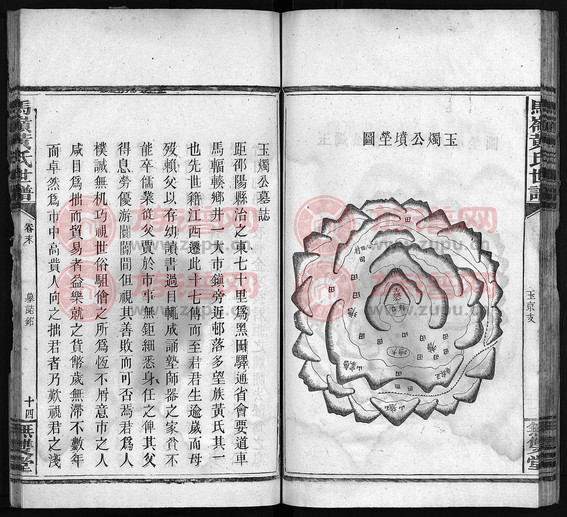 馬嶺黃氏世譜
玉燭公墳塋圖
玉京支
無雙堂
玉燭公墓誌
距邵陽縣治之東七十里爲黑田驛通省會要道車
馬輻輳鄉井一大市鎮旁近邨落多望族黃氏其一
也先世籍江西遷此十七傳而至君君生逾歲而母
歿賴父以存幼讀書過目輒成誦塾師器之家貧不
能卒儒業從父賈於市事無鉅細悉身任之俾其父
得息勞優游闤闠間但視其善敗而可否焉君爲人
樸誠無機巧視世俗駔儈之所爲恆不屑意市之人
咸目爲拙而貿易者益樂就之貨幣歲無滯不數年
而卓然爲市中高貲人向之拙君者乃歎視君之淺
馬嶺黃氏世譜
卷末
墓誌銘
十四
無雙堂
www.zupu.cn
www.zupu.cn